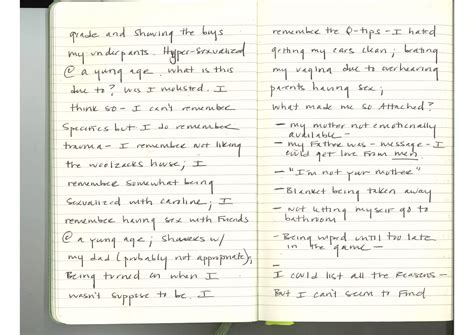 grade and showing the boys
my underpants. Hyper-sexualized
@ a yung age. what is this
due to? was I molested. I
think so - I can't remember
specifics but I do remember
trauma - I remember not liking
the woolzacks house; I
remember somewhat being
sexualized with caroline; I
remember having sex with Friends
@ a young age; showers w/
my dad (probably not appropriate),
Being turned on when I
wasn't suppose to be. I
remember the Q-tips - I hated
getting my ears clean; beating
my vagina due to overhearing
parents having sex;
what made me so Attached?
- my mother not emotionally
available -
- my Father was - message - I
could get love From men.
- "I'm not your mother"
- Blanket being taken away
- not letting myself go to
bathroom
- Being wiped until too late
in the game -
-
I could list all the Reasons -
But I can't seem to Find